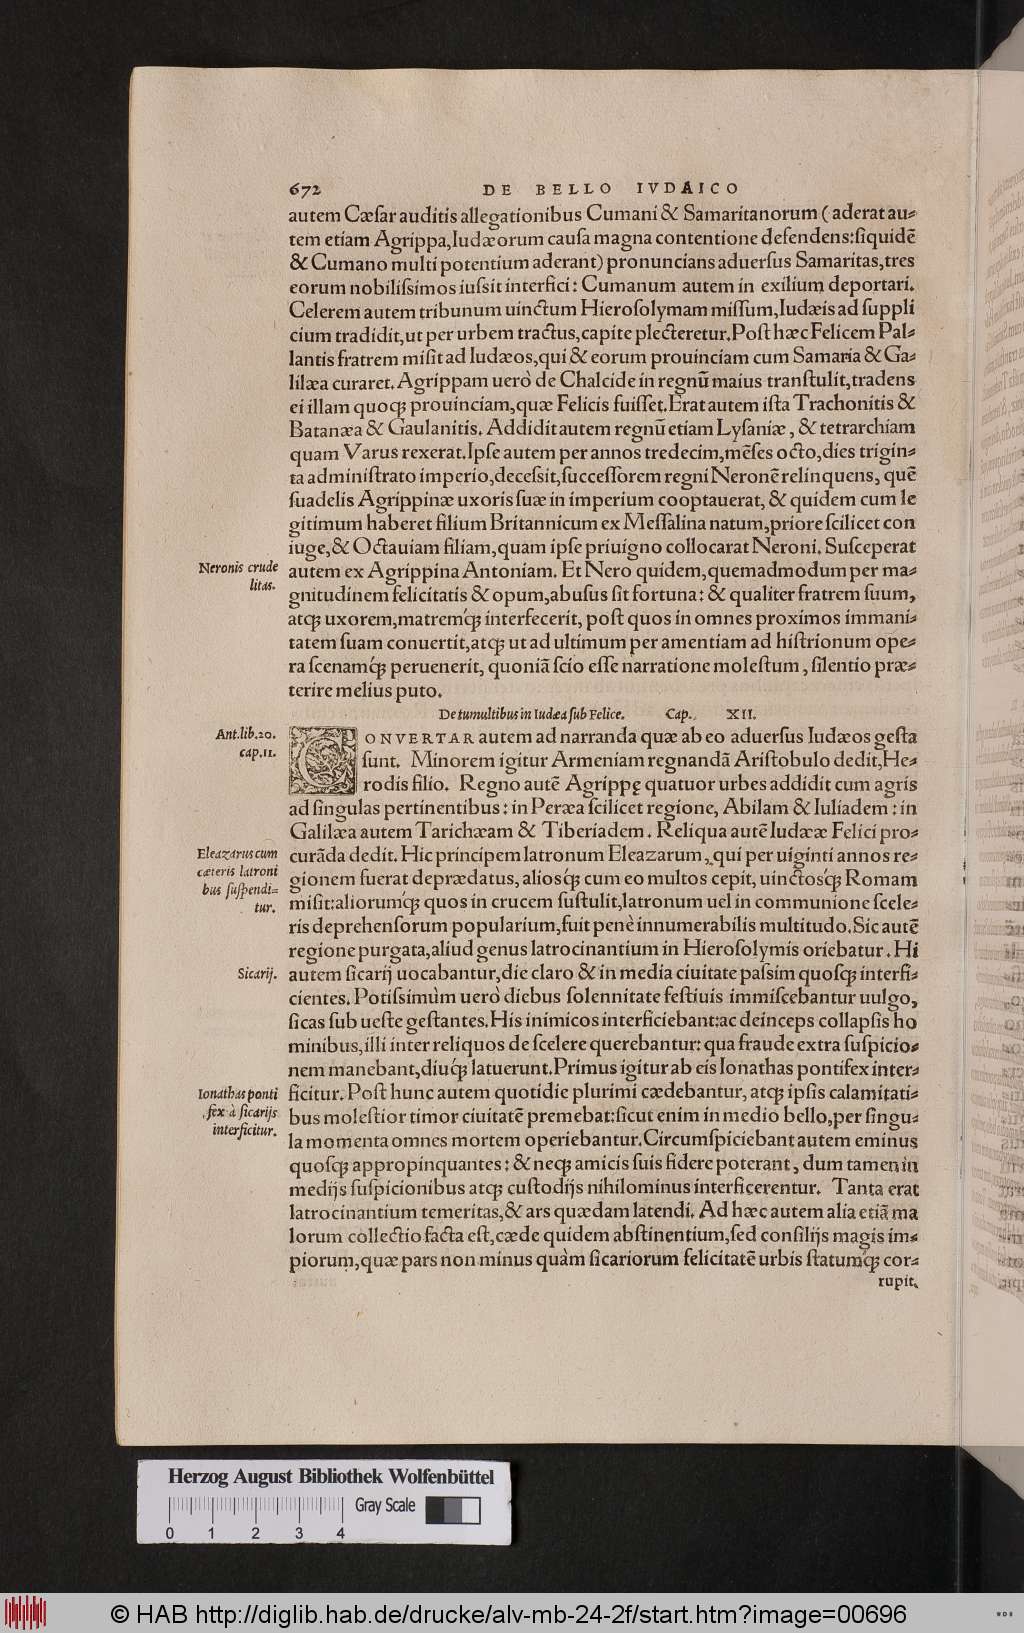 672 DE BELLO IVDAICO
autem Cæſar auditis allegationibus Cumani & Samaritanorum (aderat au-
tem etiam Agrippa,Iudæorum cauſa magna contentione defendens:ſiquidē
& Cumano multi potentium aderant) pronuncians aduerſus Samaritas,tres
eorum nobiliſsimos iuſsit interfici: Cumanum autem in exilium deportari.
Celerem autem tribunum uinctum Hieroſolymam miſſum,Iudæis ad ſuppli
cium tradidit,ut per urbem tractus,capite plecteretur.Poſt hæc Felicem Pal-
lantis fratrem miſit ad Iudæos,qui & eorum prouinciam cum Samaria & Ga-
lilæa curaret. Agrippam uerò de Chalcide in regnū maius tranſtulit,tradens
ei illam quoqꝫ prouinciam,quæ Felicis fuiſſet.Erat autem iſta Trachonitis &
Batanæa & Gaulanitis. Addidit autem regnū etiam Lyſaniæ, & tetrarchiam
quam Varus rexerat.Ipſe autem per annos tredecim,mēſes octo,dies trigin-
ta adminiſtrato imperio,deceſsit,ſucceſſorem regni Neronē relinquens, quē
ſuadelis Agrippinæ uxoris ſuæ in imperium cooptauerat, & quidem cum le
gitimum haberet filium Britannicum ex Meſſalina natum,priore ſcilicet con
iuge,& Octauiam filiam,quam ipſe priuigno collocarat Neroni. Suſceperat
Neronis crude
litas.
autem ex Agrippina Antoniam. Et Nero quidem,quemadmodum per ma-
gnitudinem felicitatis & opum,abuſus ſit fortuna: & qualiter fratrem ſuum,
atqꝫ uxorem,matremq́ꝫ interfecerit, poſt quos in omnes proximos immani-
tatem ſuam conuertit,atqꝫ ut ad ultimum per amentiam ad hiſtrionum ope-
ra ſcenamq́ꝫ peruenerit, quoniā ſcio eſſe narratione moleſtum, ſilentio præ-
terire melius puto.
De tumultibus in Iudæa ſub Felice. Cap. XII.
Ant.lib.20.
cap.11.
CONVERTAR autem ad narranda quæ ab eo aduerſus Iudæos geſta
ſunt. Minorem igitur Armeniam regnandā Ariſtobulo dedit,He-
rodis filio. Regno autē Agrippę quatuor urbes addidit cum agris
ad ſingulas pertinentibus: in Peræa ſcilicet regione, Abilam & Iuliadem: in
Galilæa autem Tarichæam & Tiberiadem. Reliqua autē Iudææ Felici pro-
Eleazarus cum
cæteris latroni
bus ſuſpendi-
tur.
curāda dedit. Hic principem latronum Eleazarum, qui per uiginti annos re-
gionem fuerat deprædatus, alioſqꝫ cum eo multos cepit, uinctoſq́ꝫ Romam
miſit:aliorumq́ꝫ quos in crucem ſuſtulit,latronum uel in communione ſcele-
ris deprehenſorum popularium,fuit penè innumerabilis multitudo.Sic autē
regione purgata,aliud genus latrocinantium in Hieroſolymis oriebatur. Hi
Sicarij.
autem ſicarij uocabantur,die claro & in media ciuitate paſsim quoſqꝫ interfi-
cientes. Potiſsimùm uerò diebus ſolennitate feſtiuis immiſcebantur uulgo,
ſicas ſub ueſte geſtantes.His inimicos interficiebant:ac deinceps collapſis ho
minibus,illi inter reliquos de ſcelere querebantur: qua fraude extra ſuſpicio-
nem manebant,diuq́ꝫ latuerunt.Primus igitur ab eis Ionathas pontifex inter-
Ionathas ponti
fex à ſicarijs
interficitur.
ficitur. Poſt hunc autem quotidie plurimi cædebantur, atqꝫ ipſis calamitati-
bus moleſtior timor ciuitatē premebat:ſicut enim in medio bello,per ſingu-
la momenta omnes mortem operiebantur.Circumſpiciebant autem eminus
quoſqꝫ appropinquantes: & neqꝫ amicis ſuis fidere poterant, dum tamen in
medijs ſuſpicionibus atqꝫ cuſtodijs nihilominus interficerentur. Tanta erat
latrocinantium temeritas,& ars quædam latendi. Ad hæc autem alia etiā ma
lorum collectio facta eſt,cæde quidem abſtinentium,ſed conſilijs magis im-
piorum,quæ pars non minus quàm ſicariorum felicitatē urbis ſtatumq́ꝫ cor-
rupit.
Herzog August Bibliothek Wolfenbüttel
Gray Scale
0 1 2 3 4
© HAB http://diglib.hab.de/drucke/alv-mb-24-2f/start.htm?image=00696